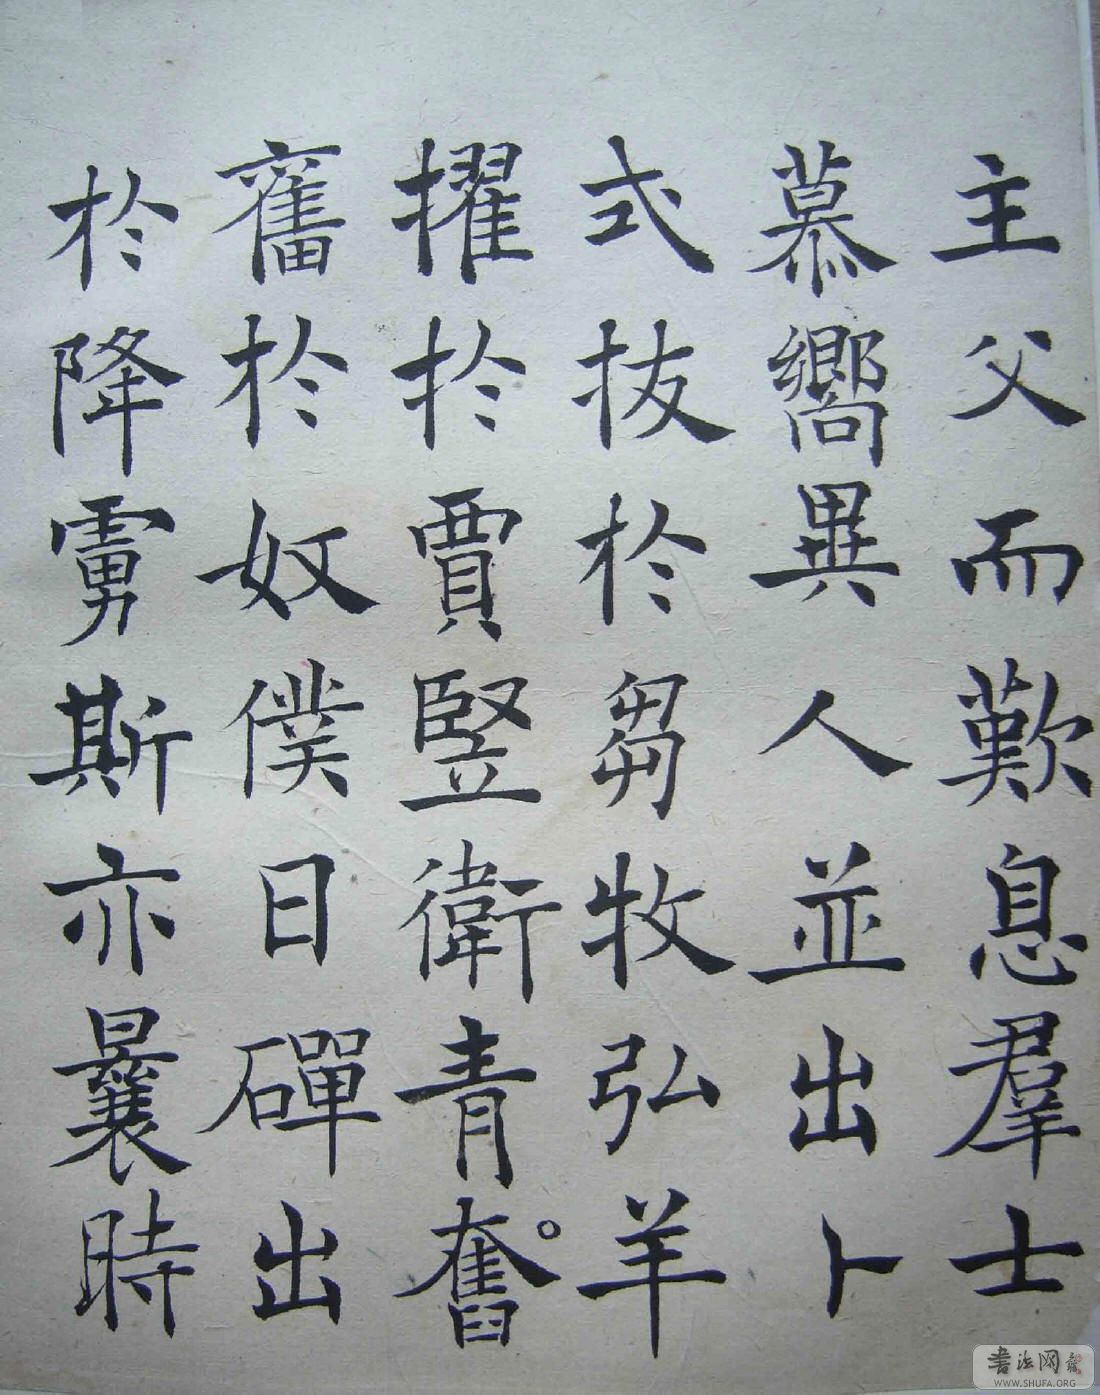 主父而歎息羣士
慕嚮異人並出卜
式拔於芻牧弘羊
擢於賈豎衛青奮
奮於奴僕日磾出
於降虜斯亦曩時
書法网
WWW.SHUFA.ORG